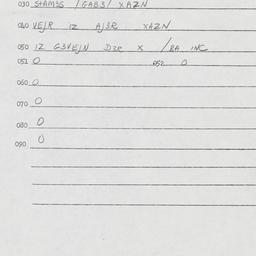 030 STAM3S /GAB3/ XAZN
040 VEJR IZ AJ3R XAZN
050 IZ G3VEJN D3R X /RA INC
051 0 052 0
060 0
070 0
080 0
090 0